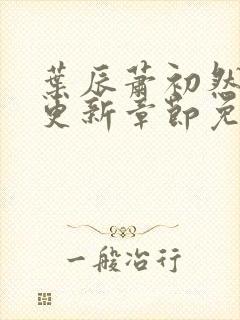 葉辰蕭初然
更新章節免
一般冶行